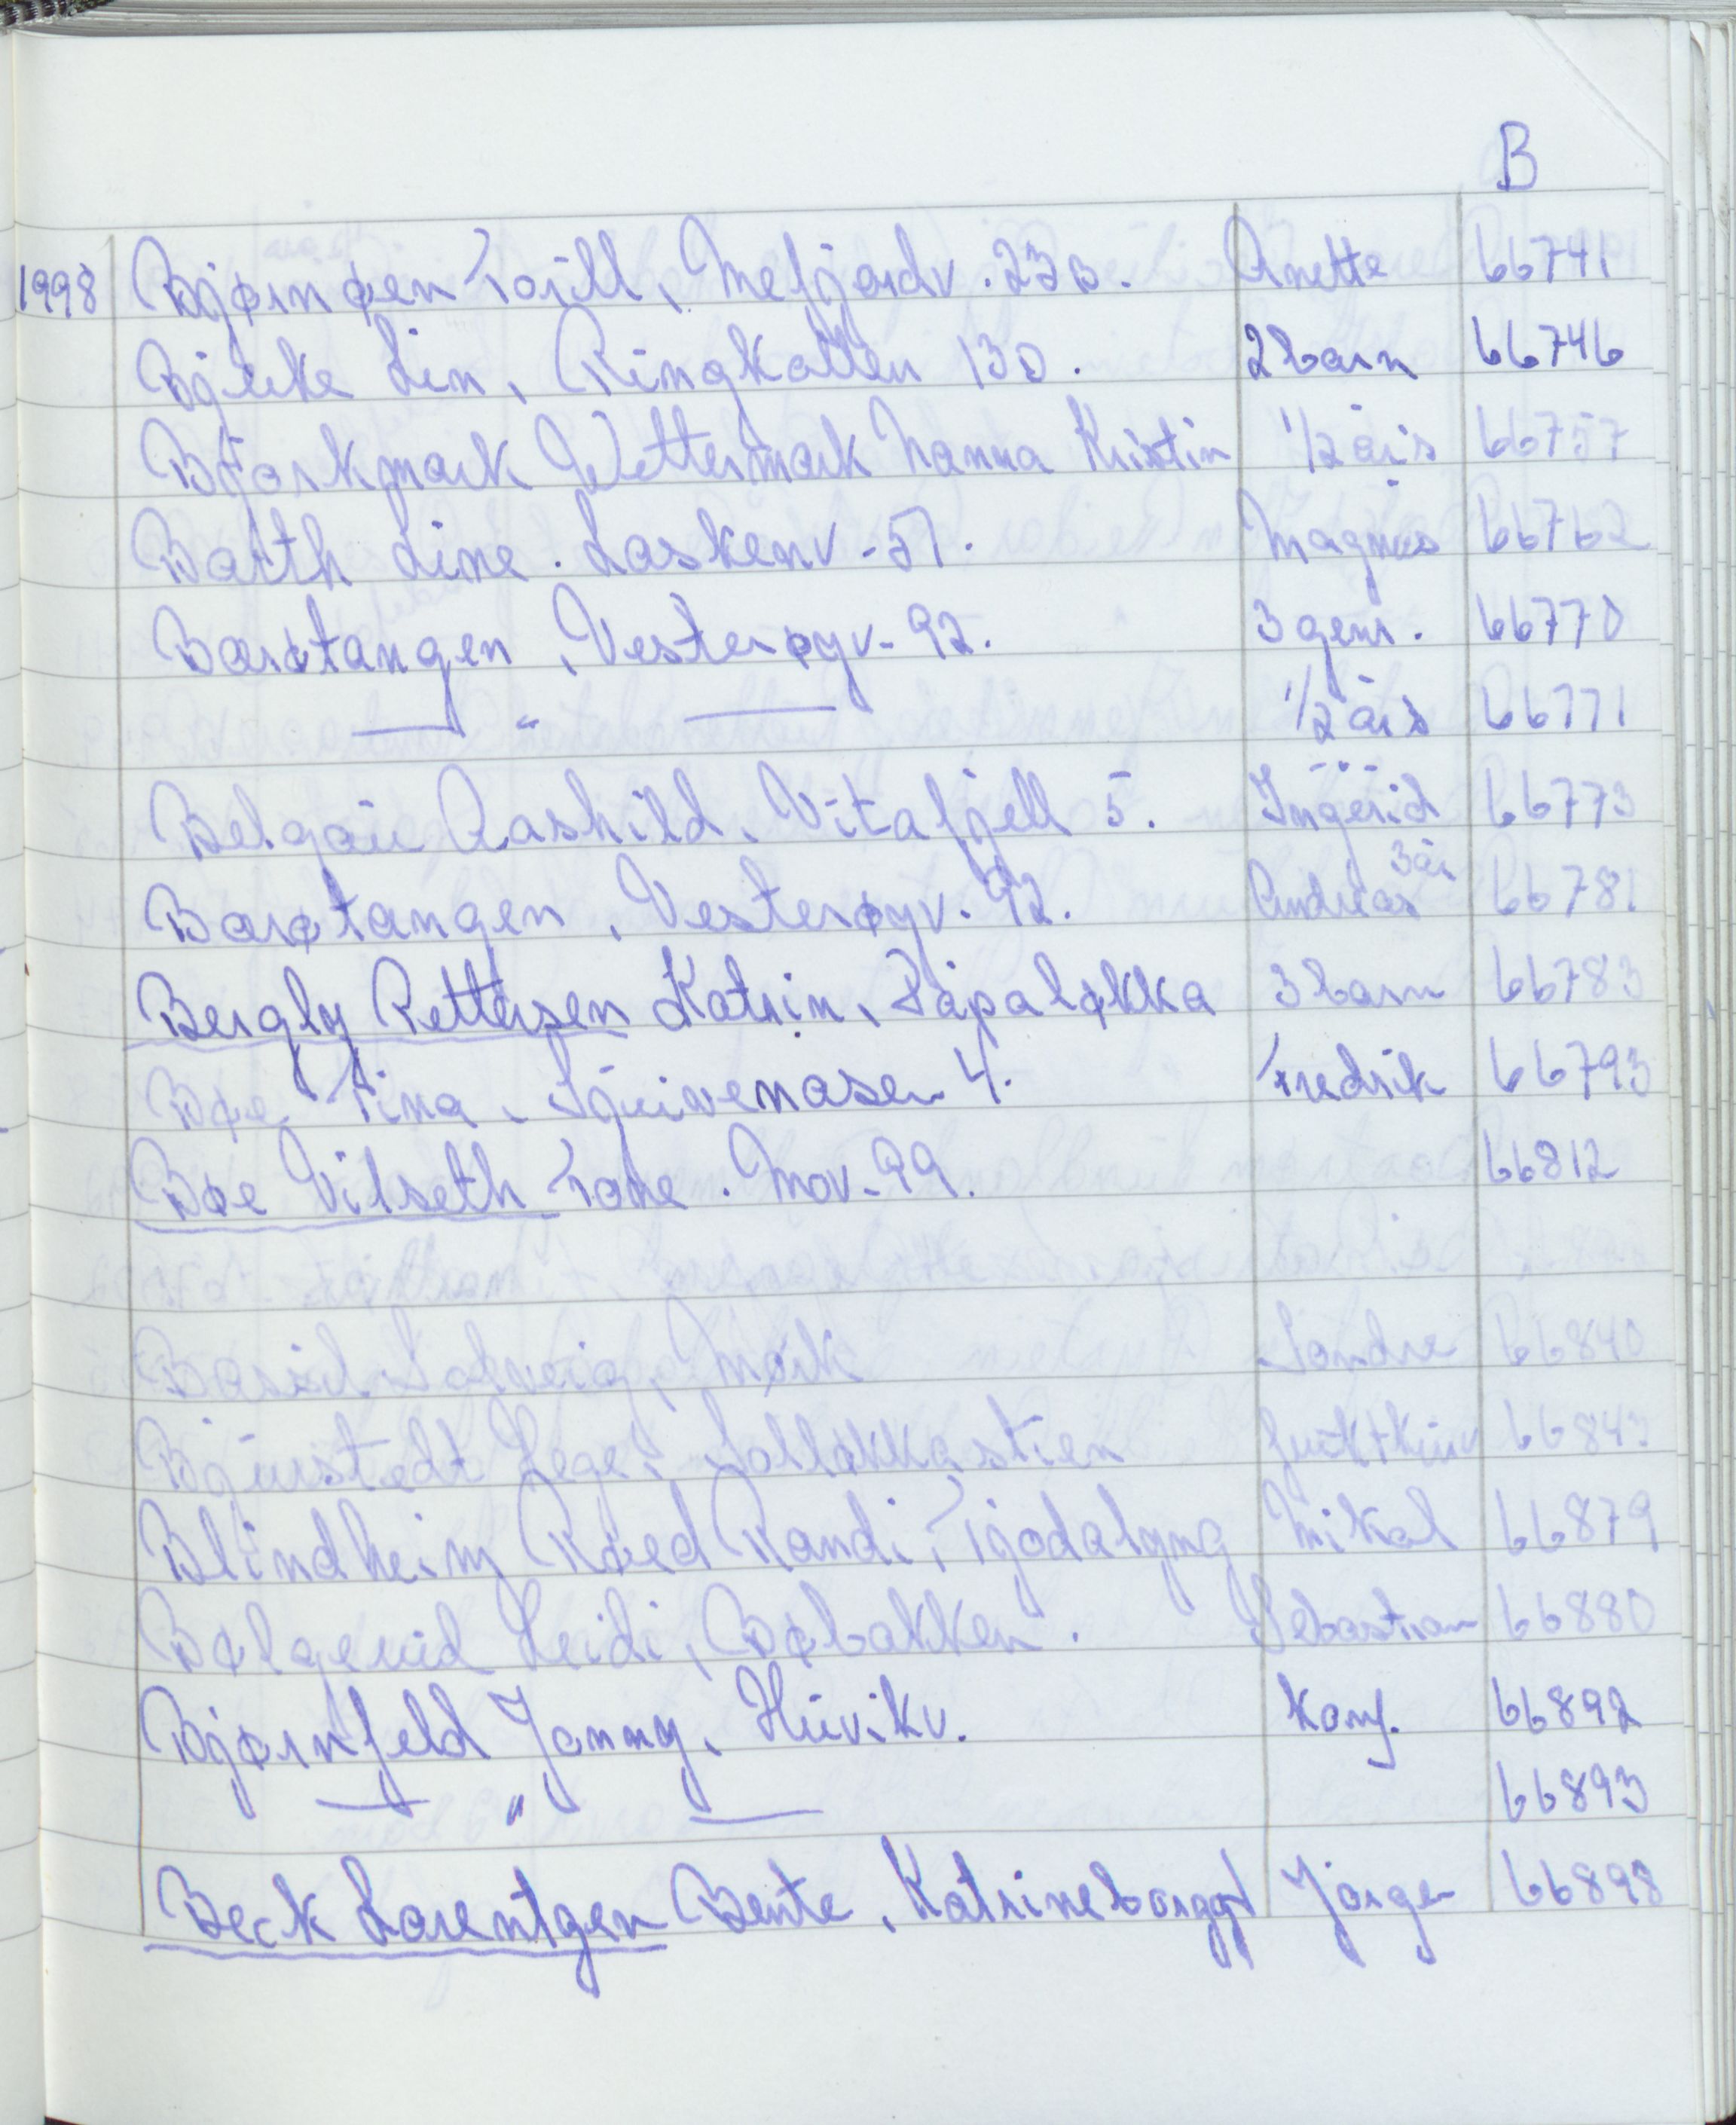 B
1998 Bjørnøen Torill, Mefjordv. 23B. Anette 66741
Bjerke Lin, Ringkollen 130. 2 barn 66746
Bjørkmark Wettermark Nanna Kristin 1/2 års 66757
Barth Line. Laskenv-51. Magnus 66762
Barøtangen, Vesterøyv-92. 3 gener. 66770
— " — 1/2 års 66771
Belgau Aashild, Vitafjell 5. Ingerid 66773
Barøtangen, Vesterøyv. 92. Andreas 3 år 66781
Bergly Pettersen Katrin, Påpaløkka 3 barn 66783
Bøe Tina, 4. Fredrik 66793
Bøe Vilseth Tone. Nov-99. 66812
Solveig, Mørk Sondre 66840
Bjurstedt Hege, Solløkkastien 66843
Blindheim Røed Randi, Tjodalyng Mikal 66879
Heidi, Bøbakken. Sebastian 66880
Bjørnfeld Jonny, Huvikv. Konf. 66892
— " — 66893
Beck Lorentzen Bente, Katrineborggt Jørgen 66898